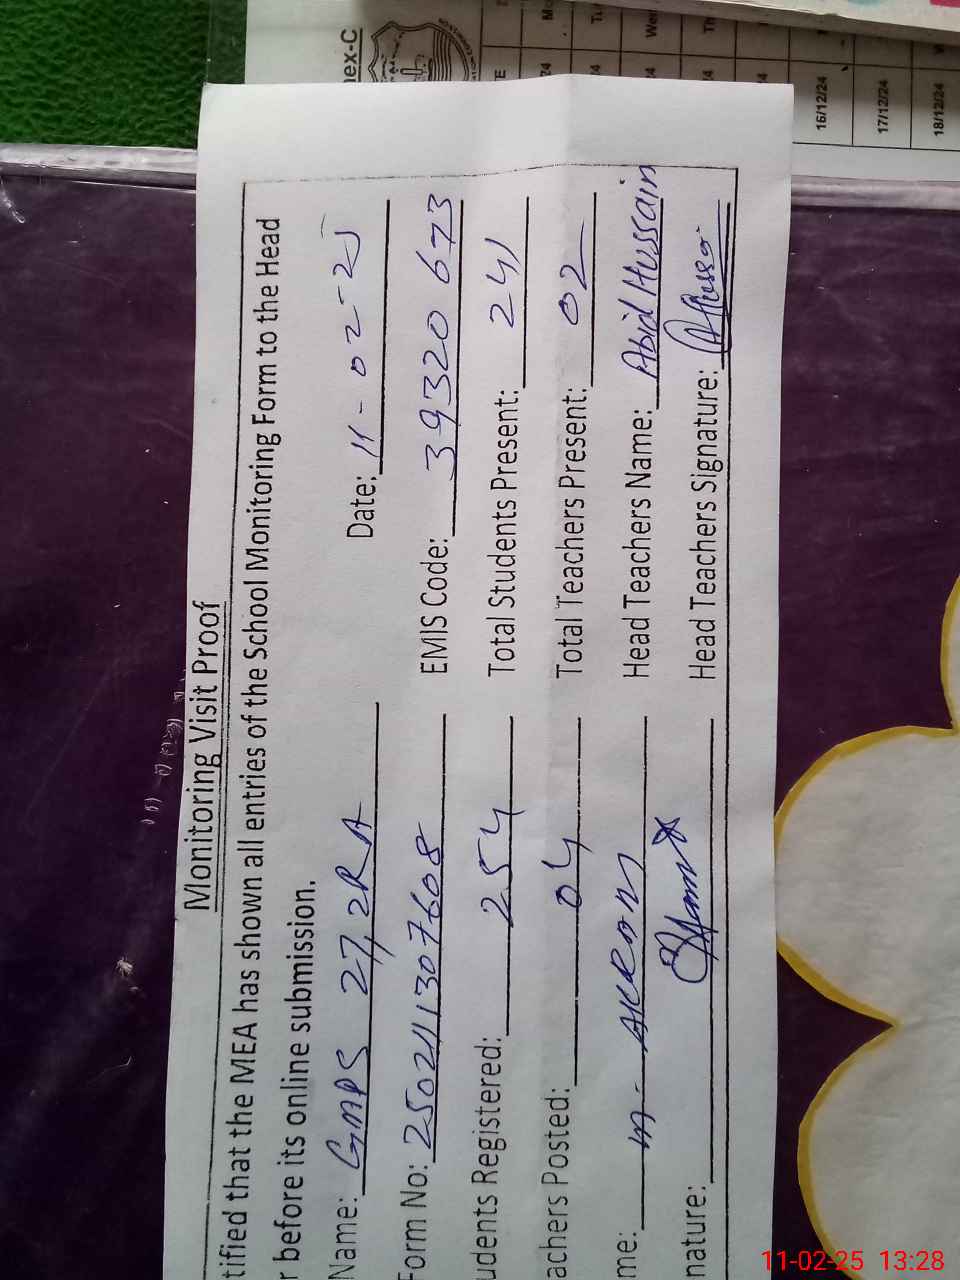 Monitoring Visit Proof
tified that the MEA has shown all entries of the School Monitoring Form to the Head
r before its online submission.
Name: GMPS 27,2RA Date: 11-02-25
Form No: 250211307608 EMIS Code: 39320673
udents Registered: 254 Total Students Present: 241
achers Posted: 04 Total Teachers Present: 02
me: M. Akram Head Teachers Name: Abid Hussain
nature: Head Teachers Signature: AHussain
nex-C
16/12/24
17/12/24
18/12/24
11-02-25 13:28